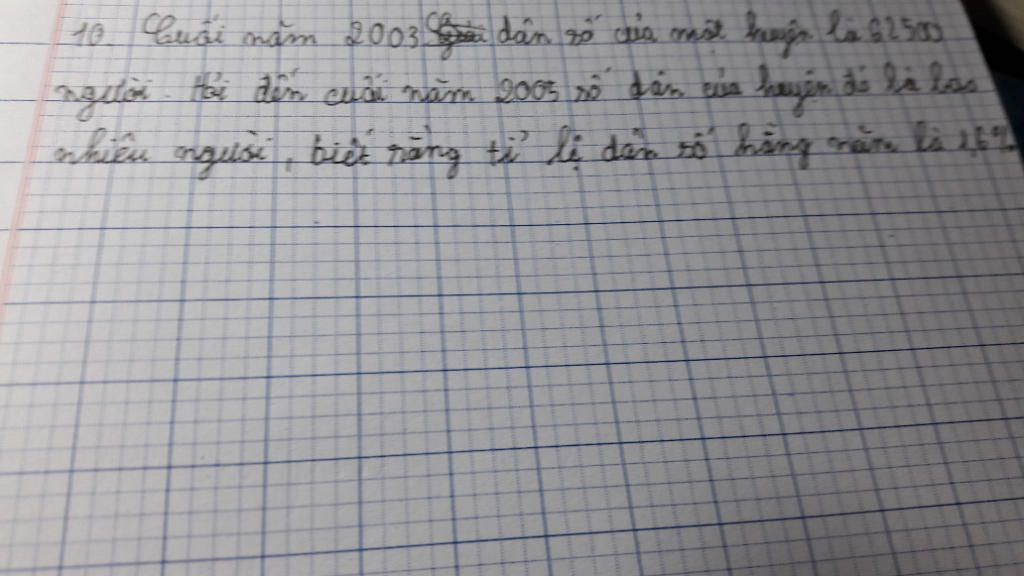 10. Cuối năm 2003 dân số của một huyện là 62500
người. Hỏi đến cuối năm 2005 số dân của huyện đó là bao
nhiêu người, biết rằng tỉ lệ dân số hằng năm là 1,6%